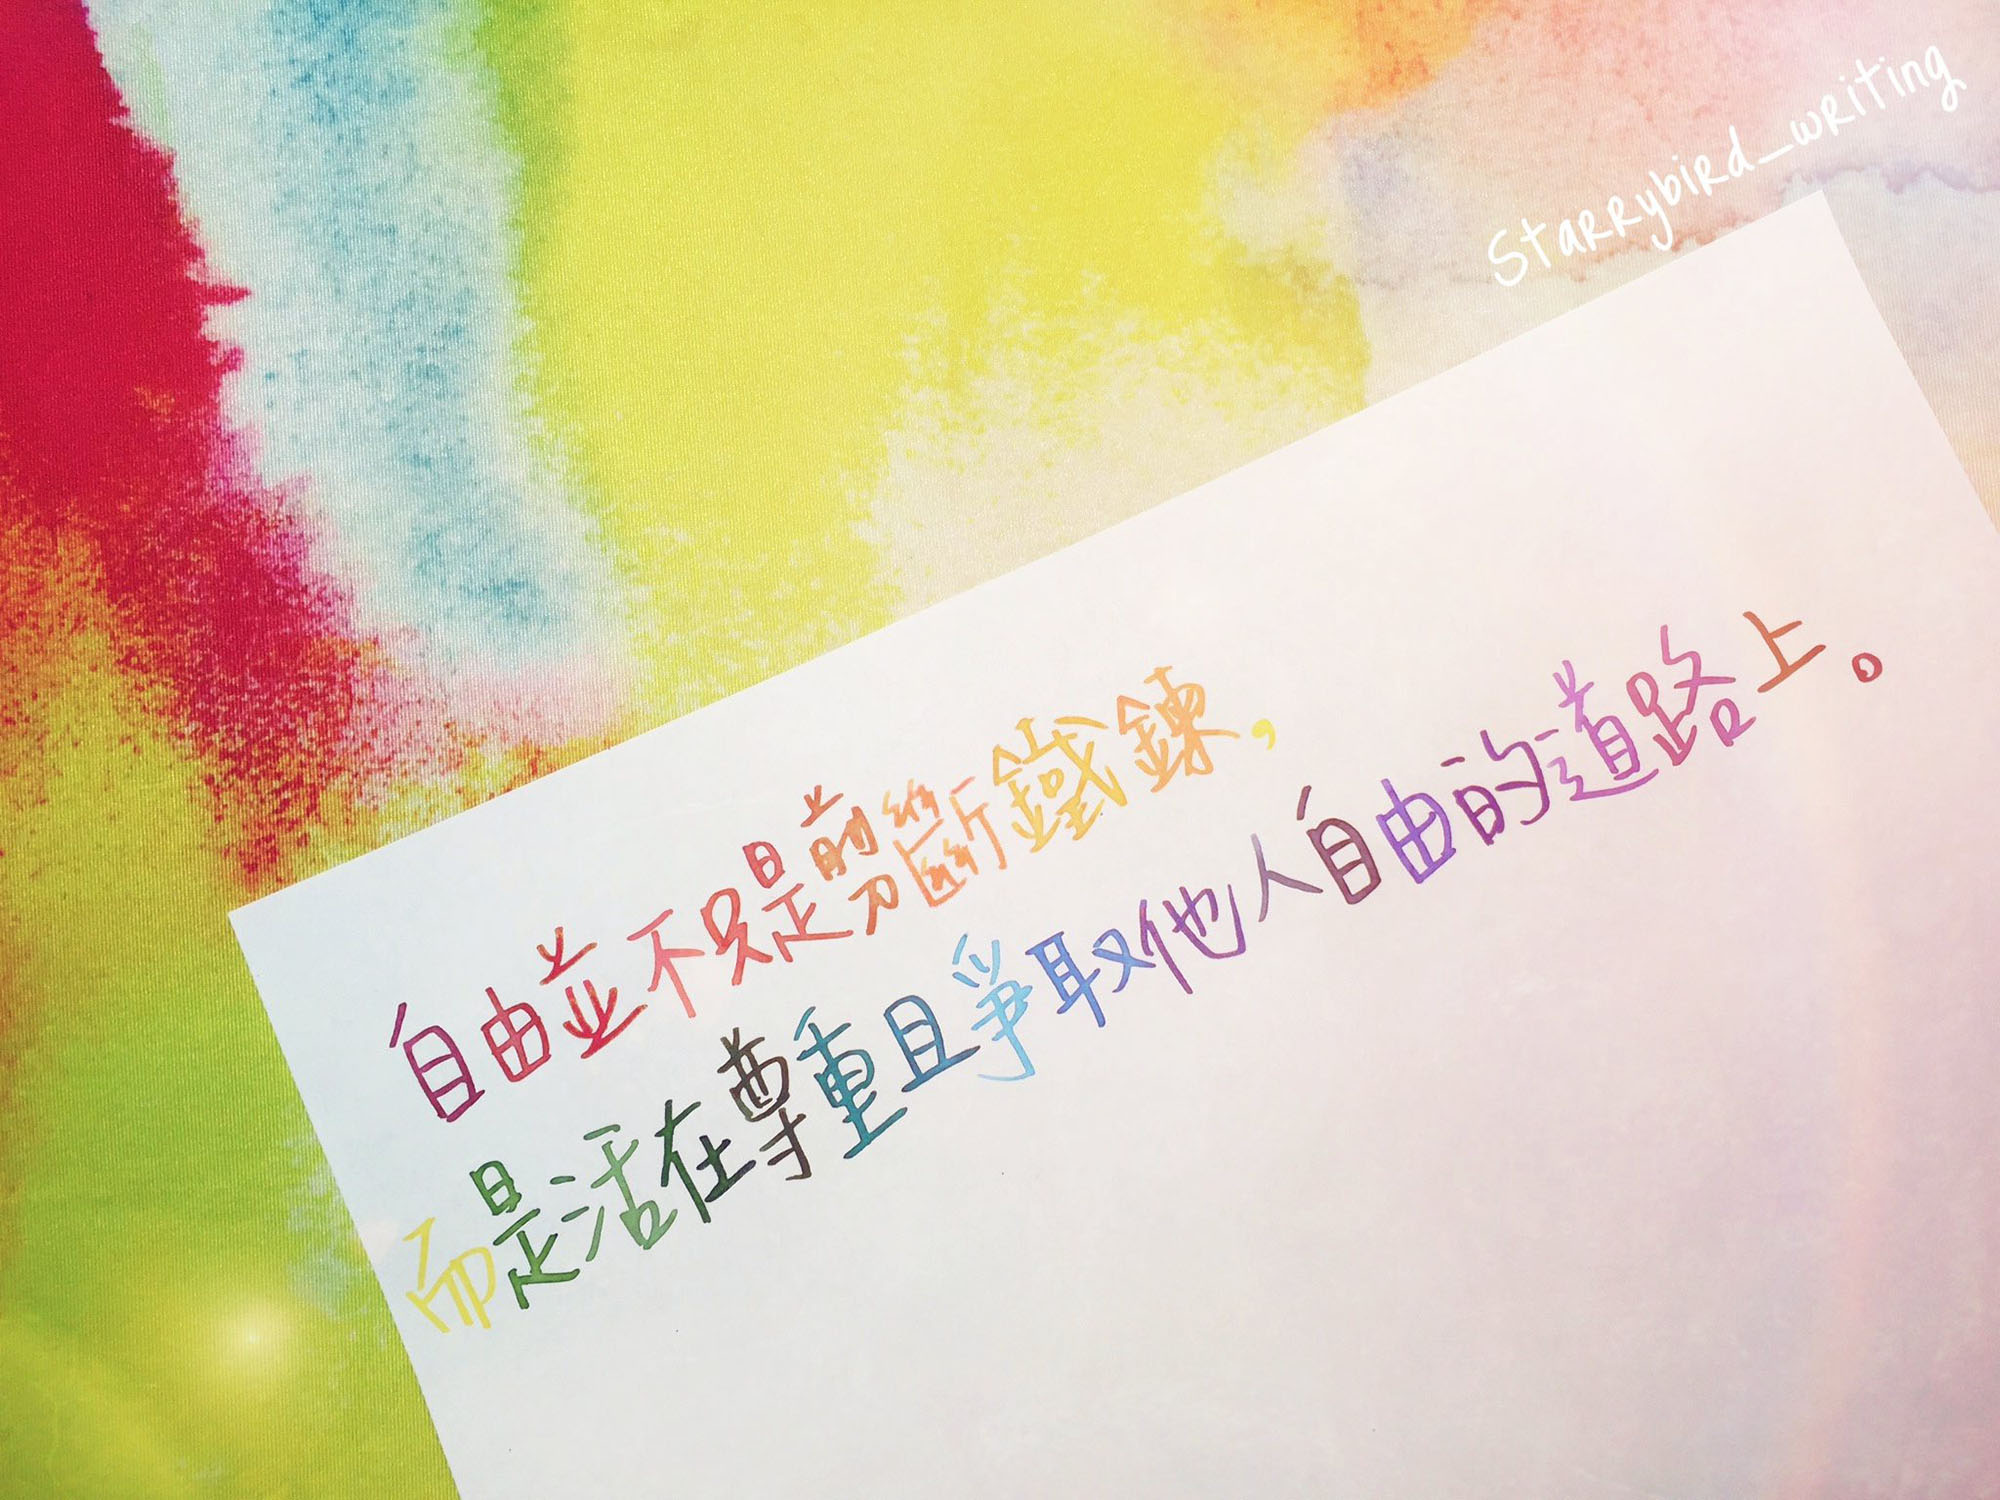 Starrybird_writing
自由並不只是剪斷鐵鍊，
而是活在尊重且爭取他人自由的道路上。